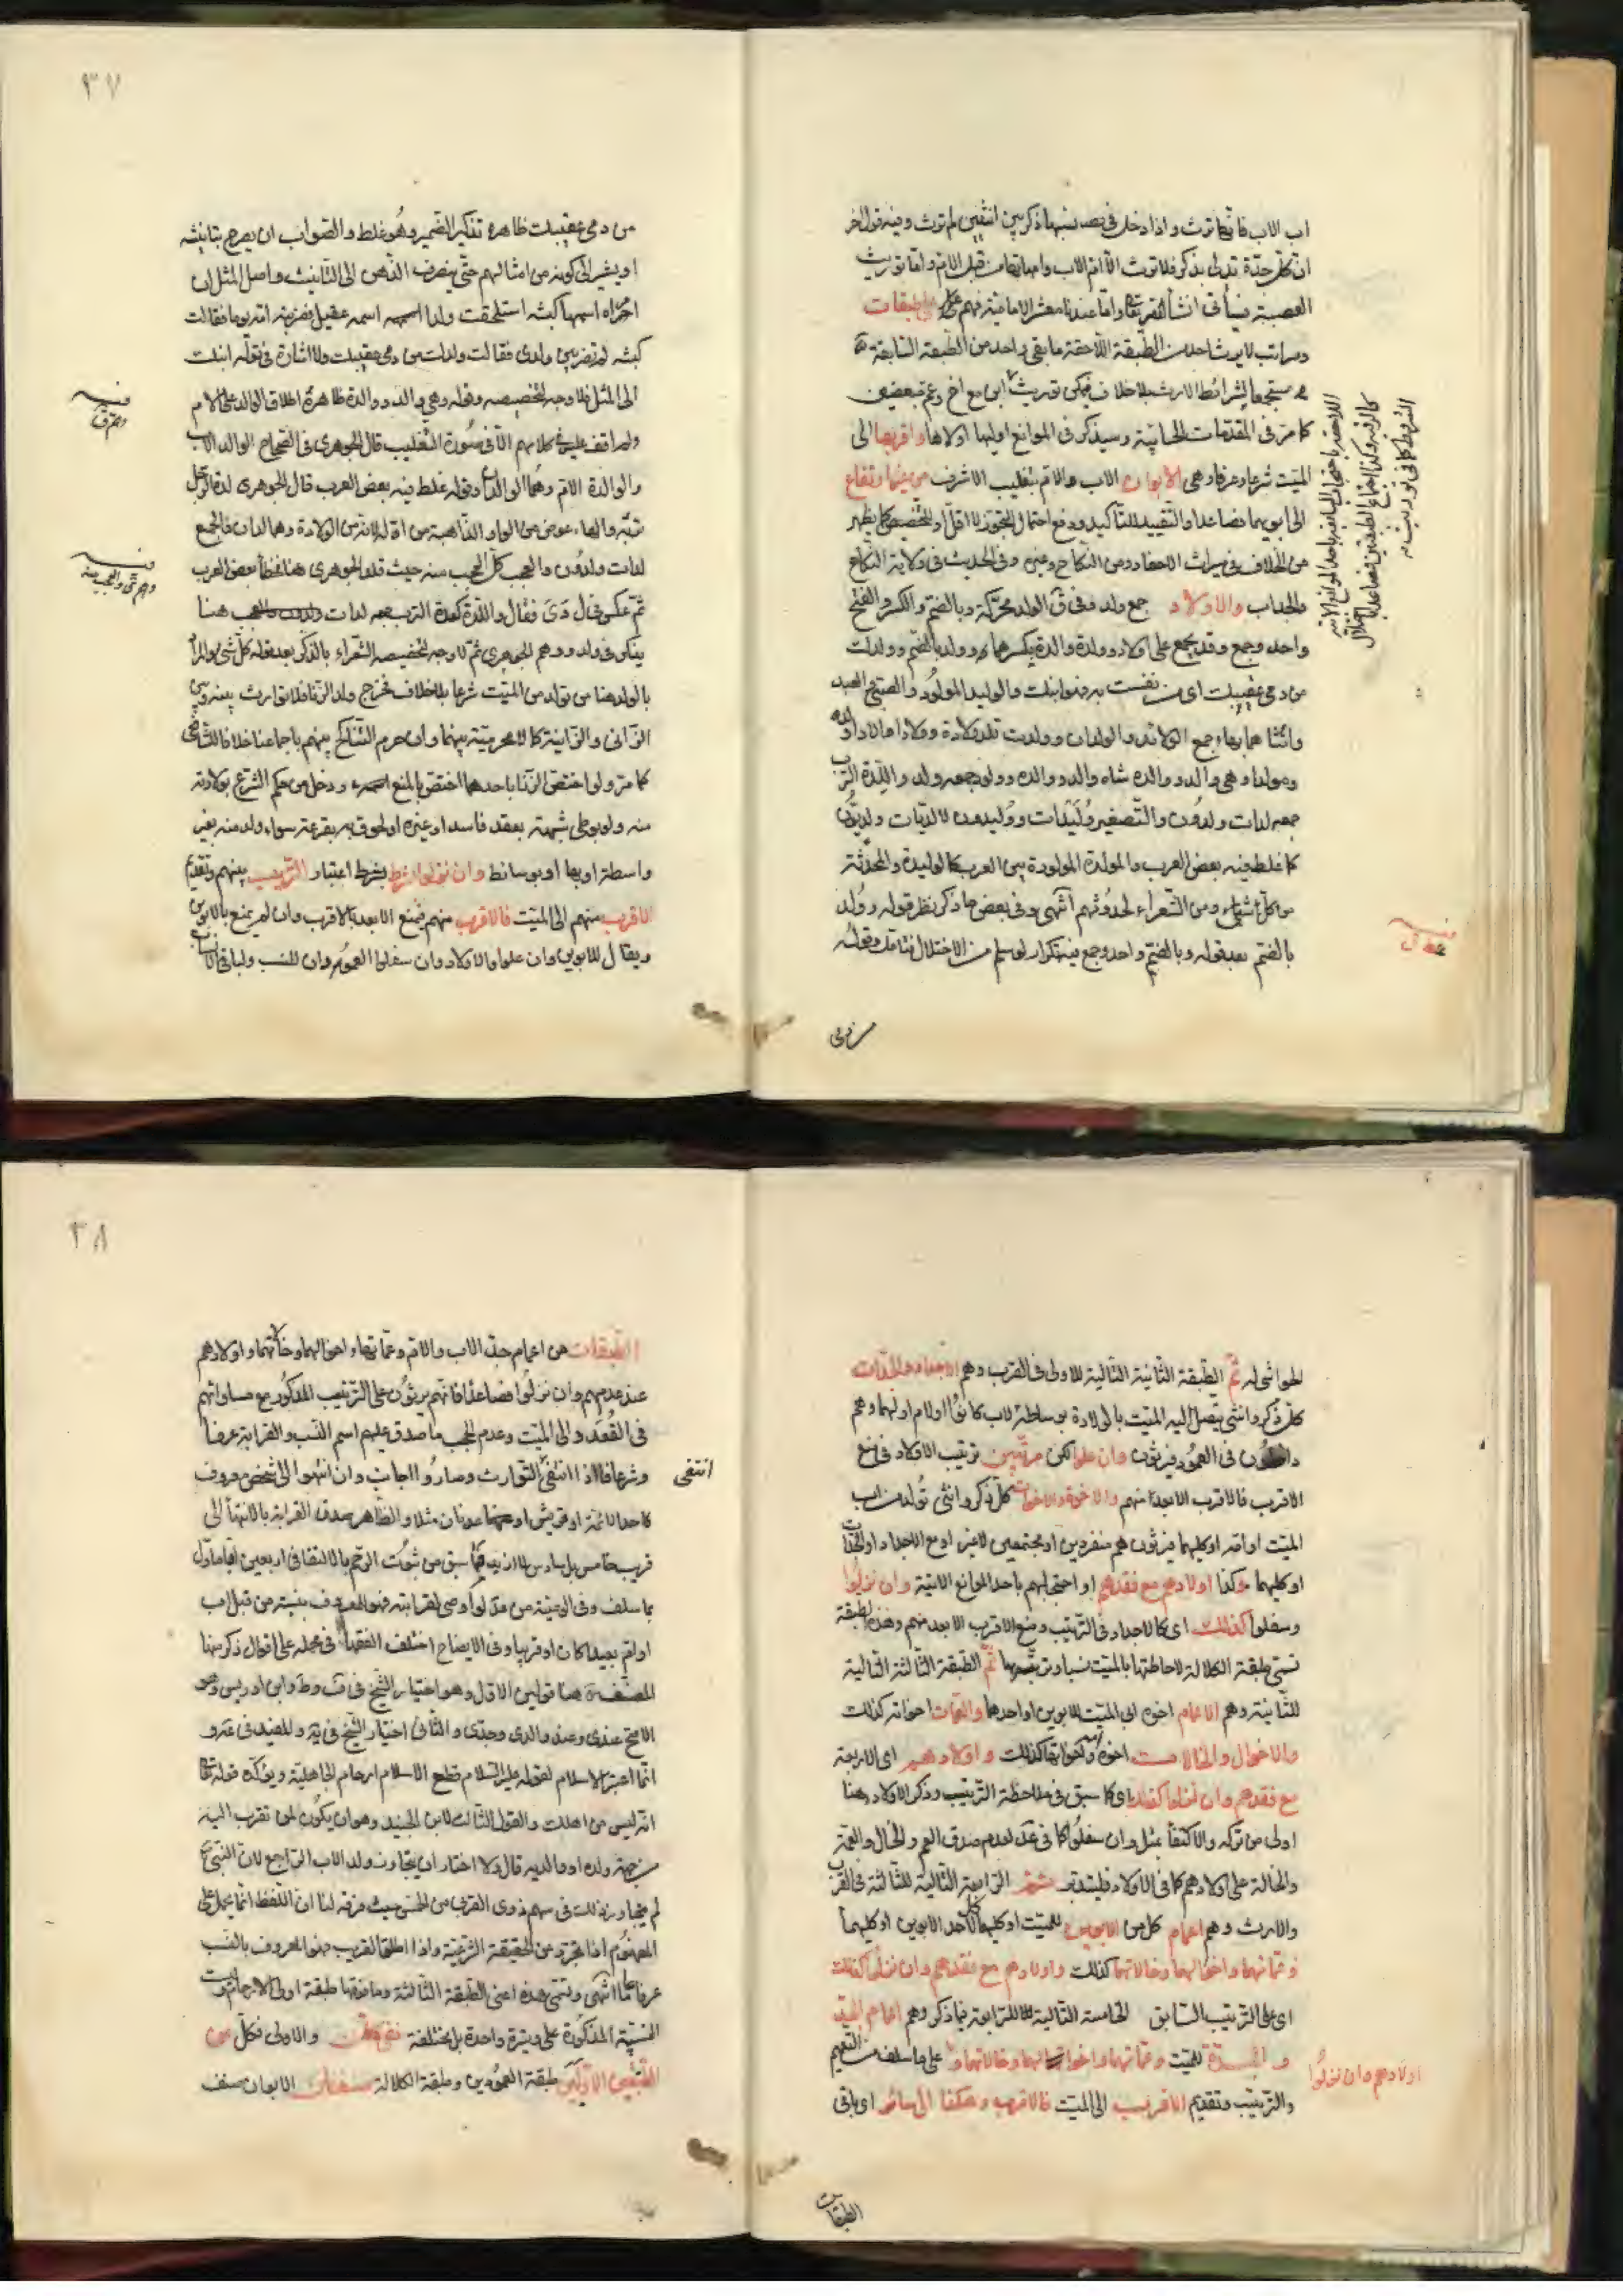 اب الاب فانها ترث واذا دخل في نسبتها ذكر بين انثيين لم ترث وفيه قول اخر
ان كل جدة تدلى بذكر فلا ترث الا ام الاب وامهاتها من قبل الام واما توريث
العصبة فسيأتي انشأ الله تعالى واما عندنا معشر الامامية فهم على طبقات
ومراتب لا يرث احد من الطبقة اللاحقة ما بقي واحد من الطبقة السابقة
مستجمعا لشرائط الارث بلا خلاف فيمكن توريث ابن مع اخ وعم تبعيض
كما مر في المقدمات الحسابية وسيذكر في الموانع اوليها اولاها واقربها الى
الميت شرعا وعرفا وهي الابوان الاب والام بتغليب الاشرف من غير ارتفاع
الى ابويهما فصاعدا والتقييد للتأكيد ودفع احتمال التجوز لا اقل او للتخصيص كما يظهر
من الخلاف في ميراث الاحفاد ومن النكاح وغيره وفي الحديث في ولاية النكاح
والحجاب والاولاد جمع ولد وفي ق الولد محركة وبالضم والكسر والفتح
واحد وجمع وقد يجمع على اولاد وولدة والدة بكسرهما وولد بالضم وولدك
من دمى عقبيك اي من نفست به فهو ابنك والوليد المولود والصبي والعبد
وانثاهما بهاء جمع الولائد والولدان وولدت تلد ولادا وولادة
ومولدا وهي والد ووالدة وشاة والد ووالدة وولود جمعه ولد واللدة الترب
جمعه لدات ولدون والتصغير وليدات ووليدون لا لديات ولديون
كما غلط فيه بعض العرب والمولدة المولودة بين العرب كالوليدة والمحدثة
من كل شئ ومن الشعراء لحدوثهم انتهى وفي بعض ما ذكر نظر قوله وولد
بالضم بعد قوله وبالضم واحد وجمع فيه تكرار لو سلم من الاختلال فتأمل وقوله
من دمى
٣٧
من دمى عقبيك ظاهره تذكير الضمير وهو غلط والصواب ان يصرح بتأنيثه
او يشير الى كونه من امثالهم حتى ينصرف الذهن الى التأنيث واصل المثل ان
امراة اسمها كبشة استلحقت ولدا اسمه عقيل فضربته امه يوما فقالت
كبشه لم تضربين ولدى فقالت ولدك من دمى عقبيك ولا اشارة في قوله ابنك
الى المثل فلا وجه لتخصيصه وقوله وهي والد ووالدة ظاهره اطلاق الوالد على الام
ولم اقف عليه في كلامهم الا في سورة التغليب قال الجوهري في الصحاح الوالد الاب
والوالدة الام وهما الوالدان وقوله غلط فيه بعض العرب قال الجوهري لدة الرجل
تربه والهاء عوض من الواو الذاهبة من اوله لانه من الولادة وهما لدان والجمع
لدات ولدون والعجب كل العجب منه حيث قلد الجوهري هنا فخطأ بعض العرب
ثم عكس في ول دى فقال واللدة كعدة الترب جمعه لدات هنا
يذكر في ولد ووهم الجوهري ثم لا وجه لتخصيصه الشعراء بالذكر بعد قوله كل شئ والمراد
بالولد هنا من تولد من الميت شرعا بلا خلاف فخرج ولد الزنا فلا توارث بينه وبين
الزاني والزانية كما لا محرمية بينهما وان حرم التناكح بينهم باجماعنا خلافا للشافعي
كما مر ولو اختص الزنا باحدهما اختص بالمنع ودخل من حكم الشرع بولادته
منه ولو بوطى شبهة بعقد فاسد او غيره او لحوق به بقرعة سواء ولد منه بغير
واسطة او بها او بوسائط وان نزلوا بشرط اعتبار الترتيب بينهم وتقديم
الاقرب منهم الى الميت فالاقرب منهم فيمنع الابعد بالاقرب وان لم يمنع بالابوين
ويقال للابوين وان علوا والاولاد وان سفلوا العمودان للنسب ولباقي الانساب
الحواشي له ثم الطبقة الثانية التالية للاولى في القرب وهم الاجداد والجدات
كل ذكر وانثى يتصل اليه الميت بالولادة بوساطة لاب كانوا او لام او لهما وهم
داخلون في العمود فيرثون وان علوا لكن مرتبين ترتيب الاولاد في منع
الاقرب فالاقرب الابعد منهم والاخوة والاخوات كل ذكر وانثى تولد من اب
الميت او امه او كليهما فيرثون هم منفردين او مجتمعين لا غير او مع الاجداد او الجدات
او كليهما وكذا اولادهم مع فقدهم او احتجابهم باحد الموانع الاتية وان نزلوا
وسفلوا كذلك اي كالاجداد في الترتيب ومنع الاقرب الابعد منهم وهذه الطبقة
تسمى طبقة الكلالة لاحاطتها بالميت نسبا وترتيبها ثم الطبقة الثالثة التالية
للثانية وهم الاعمام اخوة ابي الميت للابوين او احدهما والعمات اخواته كذلك
والاخوال والخالات اخوة امه واخواتها كذلك واولادهم اي الاربعة
مع فقدهم وان نزلوا كذلك اي كما سبق في ملاحظة الترتيب وذكر الاولاد هنا
اولى من تركه والاكتفأ بمثل وان سفلوا كما في عد لعدم صدق العم والخال والعمة
والخالة على اولادهم كما في الاولاد فليتدبر ثم الرابعة التالية للثالثة في القرب
والارث وهم اعمام كل من الابوين للميت او كليهما لاحد الابوين او كليهما
وعماتهما واخوالهما وخالاتهما كذلك واولادهم مع فقدهم وان نزلوا كذلك
اي على الترتيب السابق الخامسة التالية للرابعة فيما ذكر وهم اعمام الجد
والجدة للميت وعماتهما واخوالهما وخالاتهما على ما سلف من التعميم
اولادهم وان نزلوا
والترتيب وتقديم الاقرب الى الميت فالاقرب وهكذا الى سائر اي باقي
الطبقات
٣٨
الطبقات من اعمام جد الاب والام وعماتهما واخوالهما وخالاتهما واولادهم
عند عدمهم وان نزلوا فصاعدا فانهم يرثون على الترتيب المذكور مع مساواتهم
في القعدد الى الميت وعدم الحجب ما صدق عليهم اسم النسب والقرابة عرفا
وشرعا فاذا انتفى التوارث وصاروا اجانب وان انتهوا الى شخص معروف
انتفى
كاحد الائمة او قريش او عدنان مثلا والظاهر صدق القرابة بالانتهأ الى
قريب خامس بل سادس لا ازيد فما سبق من ثبوت الرحم بالالتقا في اربعين ابا مأول
بما سلف وفي الوصية من عد لو اوصى لقرابته فهو المعروف بنسبه من قبل اب
او ام بعيدا كان او قريبا وفي الايضاح اختلف الفقهأ في محله على اقوال ذكر منها
المصنف هنا قولين الاول وهو اختيار الشيخ في ف وط وابن ادريس وهو
الاصح عندى وعند والدى وجدى والثاني اختيار الشيخ في يه والمفيد في عه و
انما اعتبر الاسلام لقوله عليه السلام قطع الاسلام ارحام الجاهلية ويؤكده قوله تعالى
انه ليس من اهلك والقول الثالث لابن الجنيد وهو ان يكون لمن تقرب اليه
من جهة ولده او والديه قال ولا اختار ان يتجاوز ولد الاب الرابع لان النبي ص
لم يتجاوز ذلك في سهم ذوى القربى من الخمس حيث فرقه لنا ان اللفظ انما يحمل على
المفهوم اذا تجرد من الحقيقة الشرعية واذا اطلق القريب فهو المعروف بالنسب
عرفا عاما انتهى وتسمى هذه اعنى الطبقة الثالثة وما فوقها طبقة اولى الارحام وليست
النسبية المذكورة على وتيرة واحدة بل مختلفة والاولى فكل من
الطبقتين الاوليين طبقة العمودين وطبقة الكلالة صنفان الابوان صنف